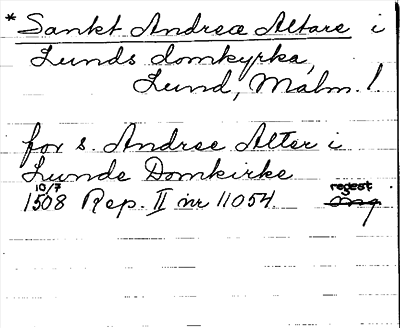 * Sankt Andreæ Altare i
Lunds domkyrka,
Lund, Malm. l.
for s. Andree Alter i
Lunde Domkirke
10/7
1508 Rep. II nr 11054. regest